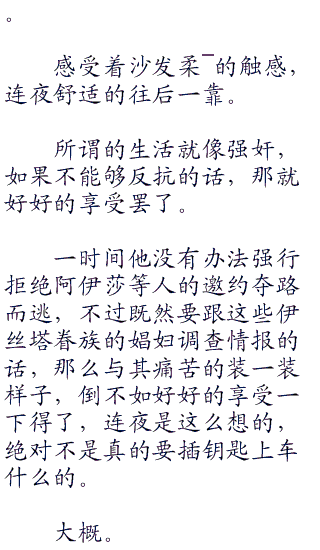 。
感受着沙发柔¯的触感，
连夜舒适的往后一靠。
所谓的生活就像强奸，
如果不能够反抗的话，那就
好好的享受罢了。
一时间他没有办法强行
拒绝阿伊莎等人的邀约夺路
而逃，不过既然要跟这些伊
丝塔眷族的娼妇调查情报的
话，那么与其痛苦的装一装
样子，倒不如好好的享受一
下得了，连夜是这么想的，
绝对不是真的要插钥匙上车
什么的。
大概。